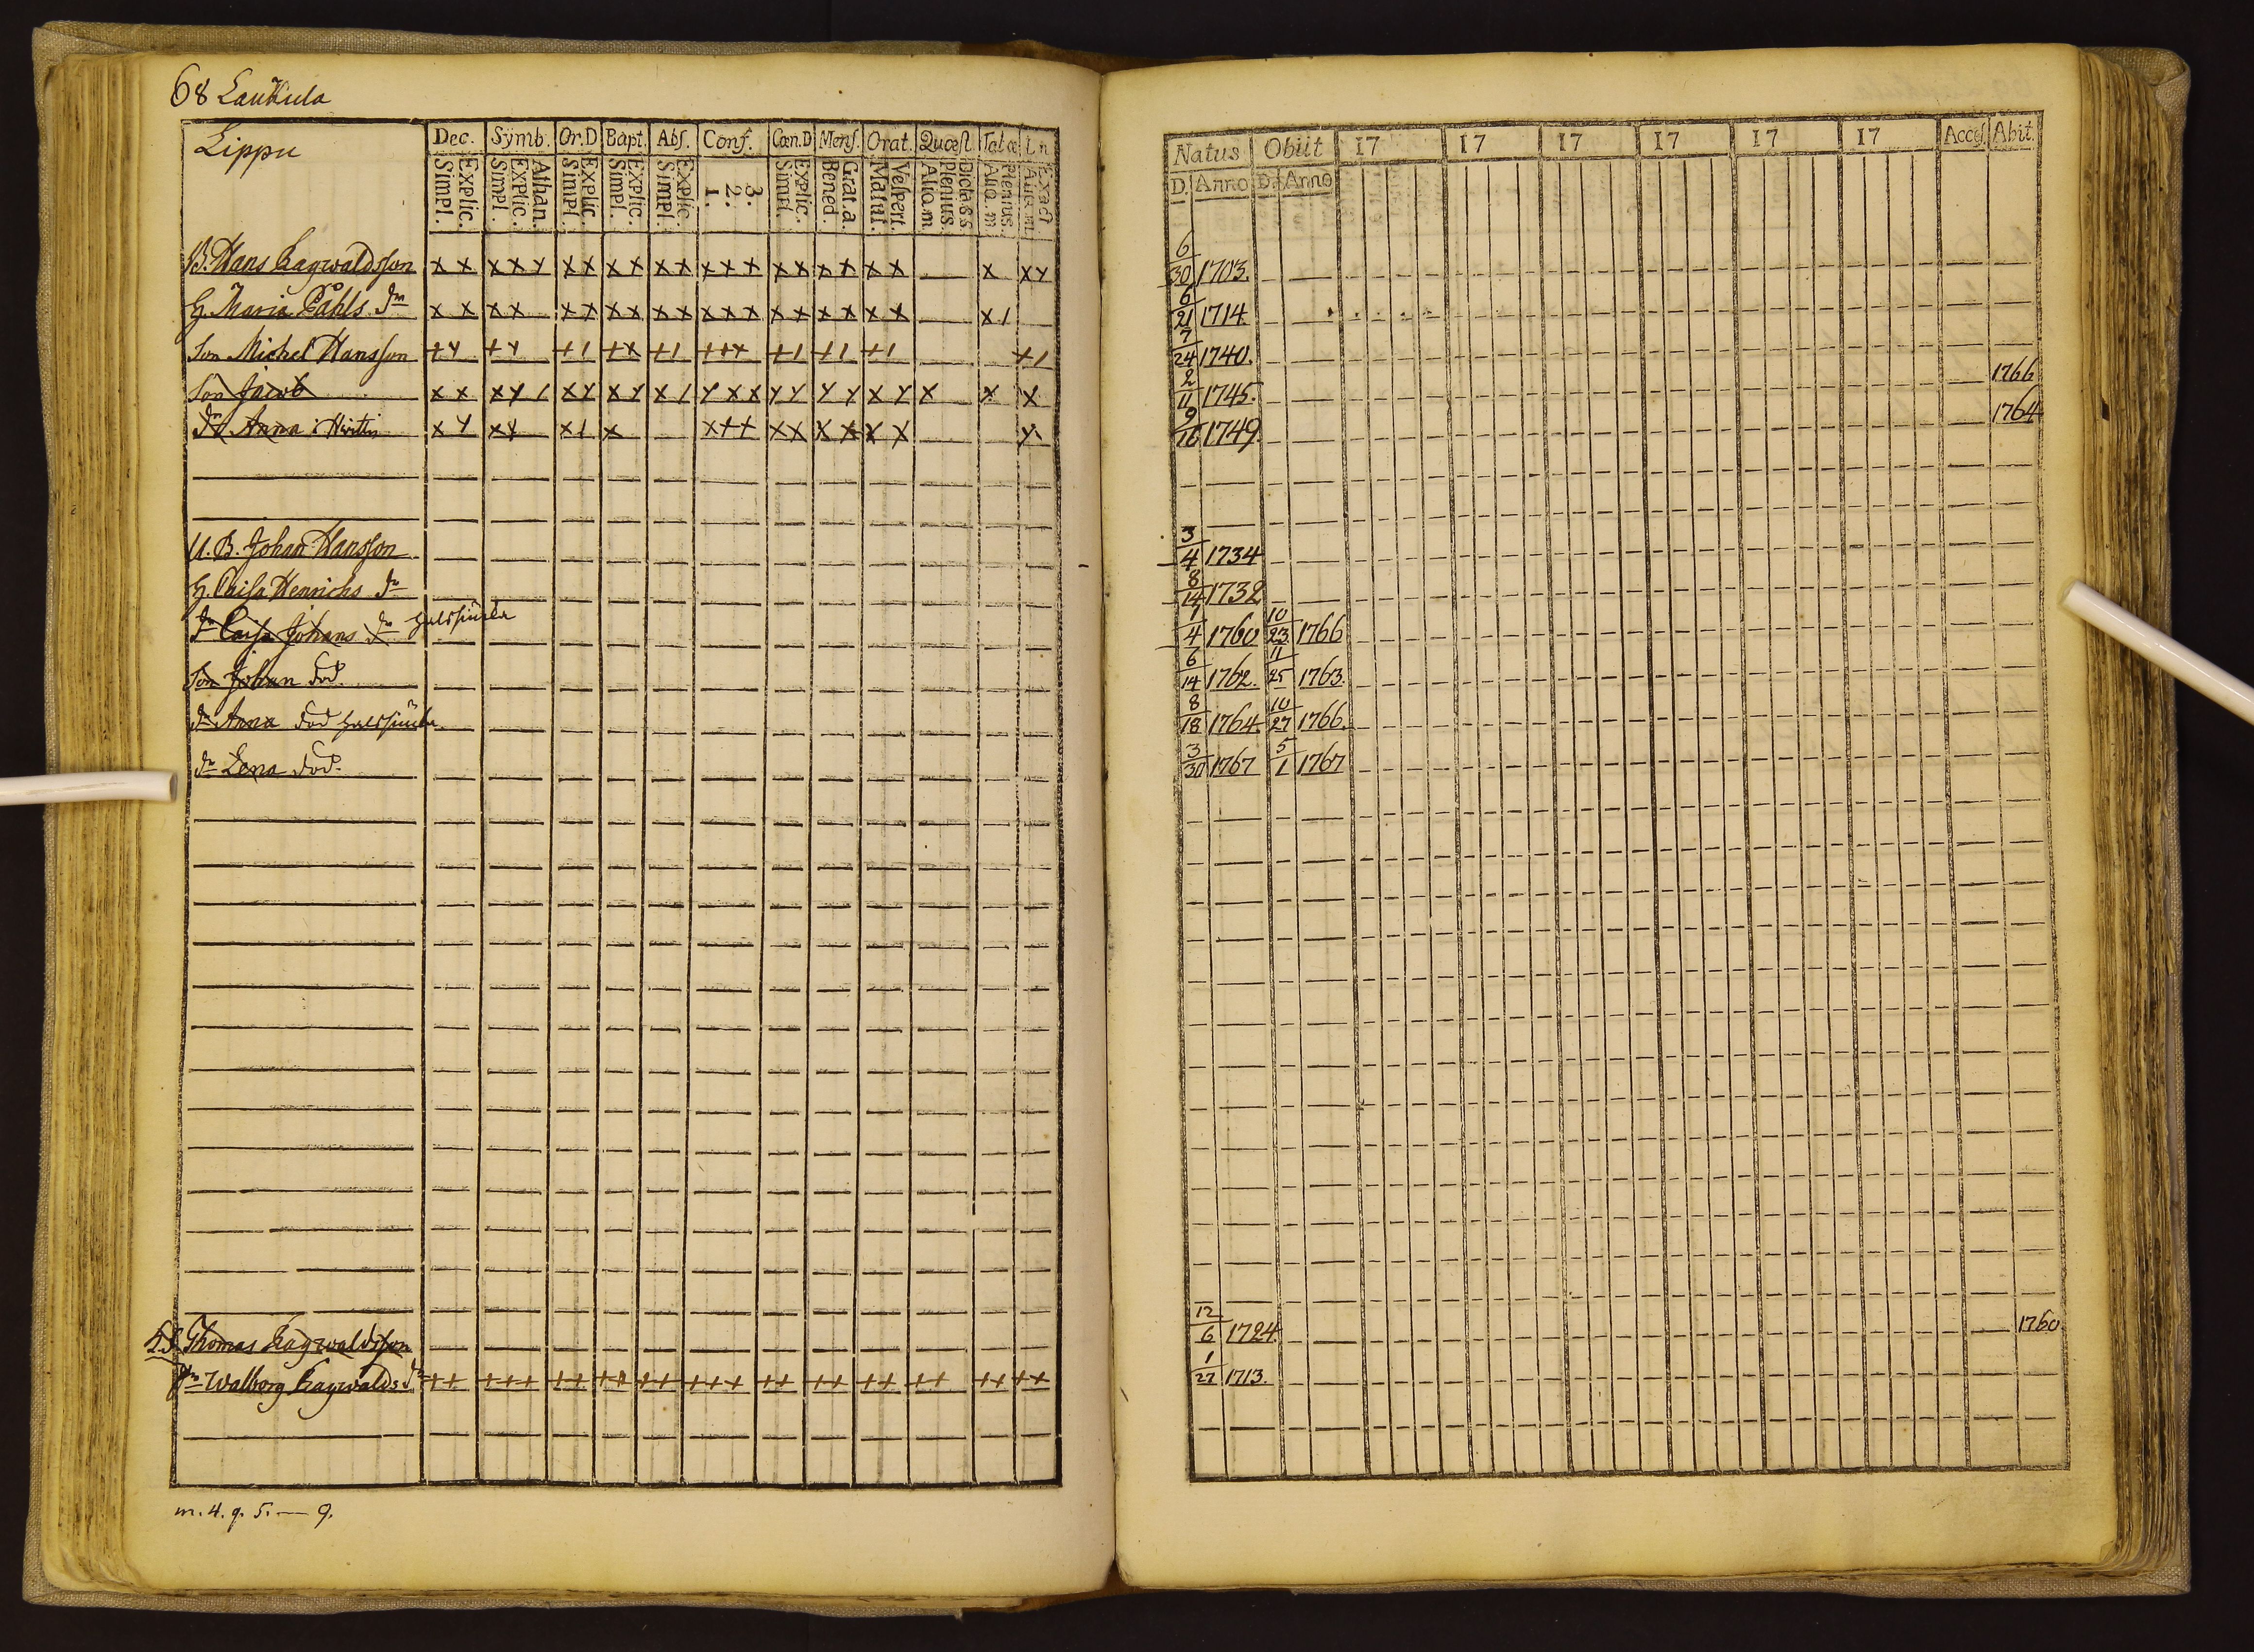 68 Laukula
Lippu
Dec. Symb. Or.D Bapt. Abs. Conf. Cœn.D Mens. Orat. Quæst. Tabœ In
Explic. Simpl. Athan. Explic. Simpl. Explic. Simpl. Explic. Simpl. Explic. Simpl. 3. 2. 1. Explic. Simpl. Grat.a. Bened. Vespert. Matut. Dicta S.S Plenius. Aliq.m Plenius. Aliq.m Exact. Aliq.m
B. Hans Ragwaldsson x x x x y x x x x x x x x x x x x x x x x x y
H. Maria Påhls dr x x x x x x x x x x x x x x x x x x x x 1
Son Michel Hansson + y + y + 1 + x + 1 + + x + 1 + 1 + 1 + 1
Son Jacob x x x y 1 x y x y x 1 y x x y y y y x y x x x
dr Anna i Hvittis x y x y x 1 x x + + x x x x x x y
U. B. Johan Hansson
H. Caisa Henrichs dr
dr Caisa Johans dr halssiuka
Son Johan död.
dr Anna död halssiuka
dr Lena död.
Thomas Ragwaldsson
dr Walborg Ragwalds dr + + + + + + + + + + + + + + + + + + + + + + + + + +
m. 4. q. 5. — 9.
Natus Obiit 17 17 17 17 17 17 Acces. Abit.
D. Anno D. Anno
6/30 1703.
6/21 1714.
7/24 1740.
2/11 1745. 1766
9/16 1749 1764
3/4 1734
8/14 1732
1/4 1760 10/23 1766
6/14 1762. 11/25 1763.
8/18 1764. 10/27 1766.
3/30 1767 5/1 1767
12/6 1724. 1760.
1/27 1713.